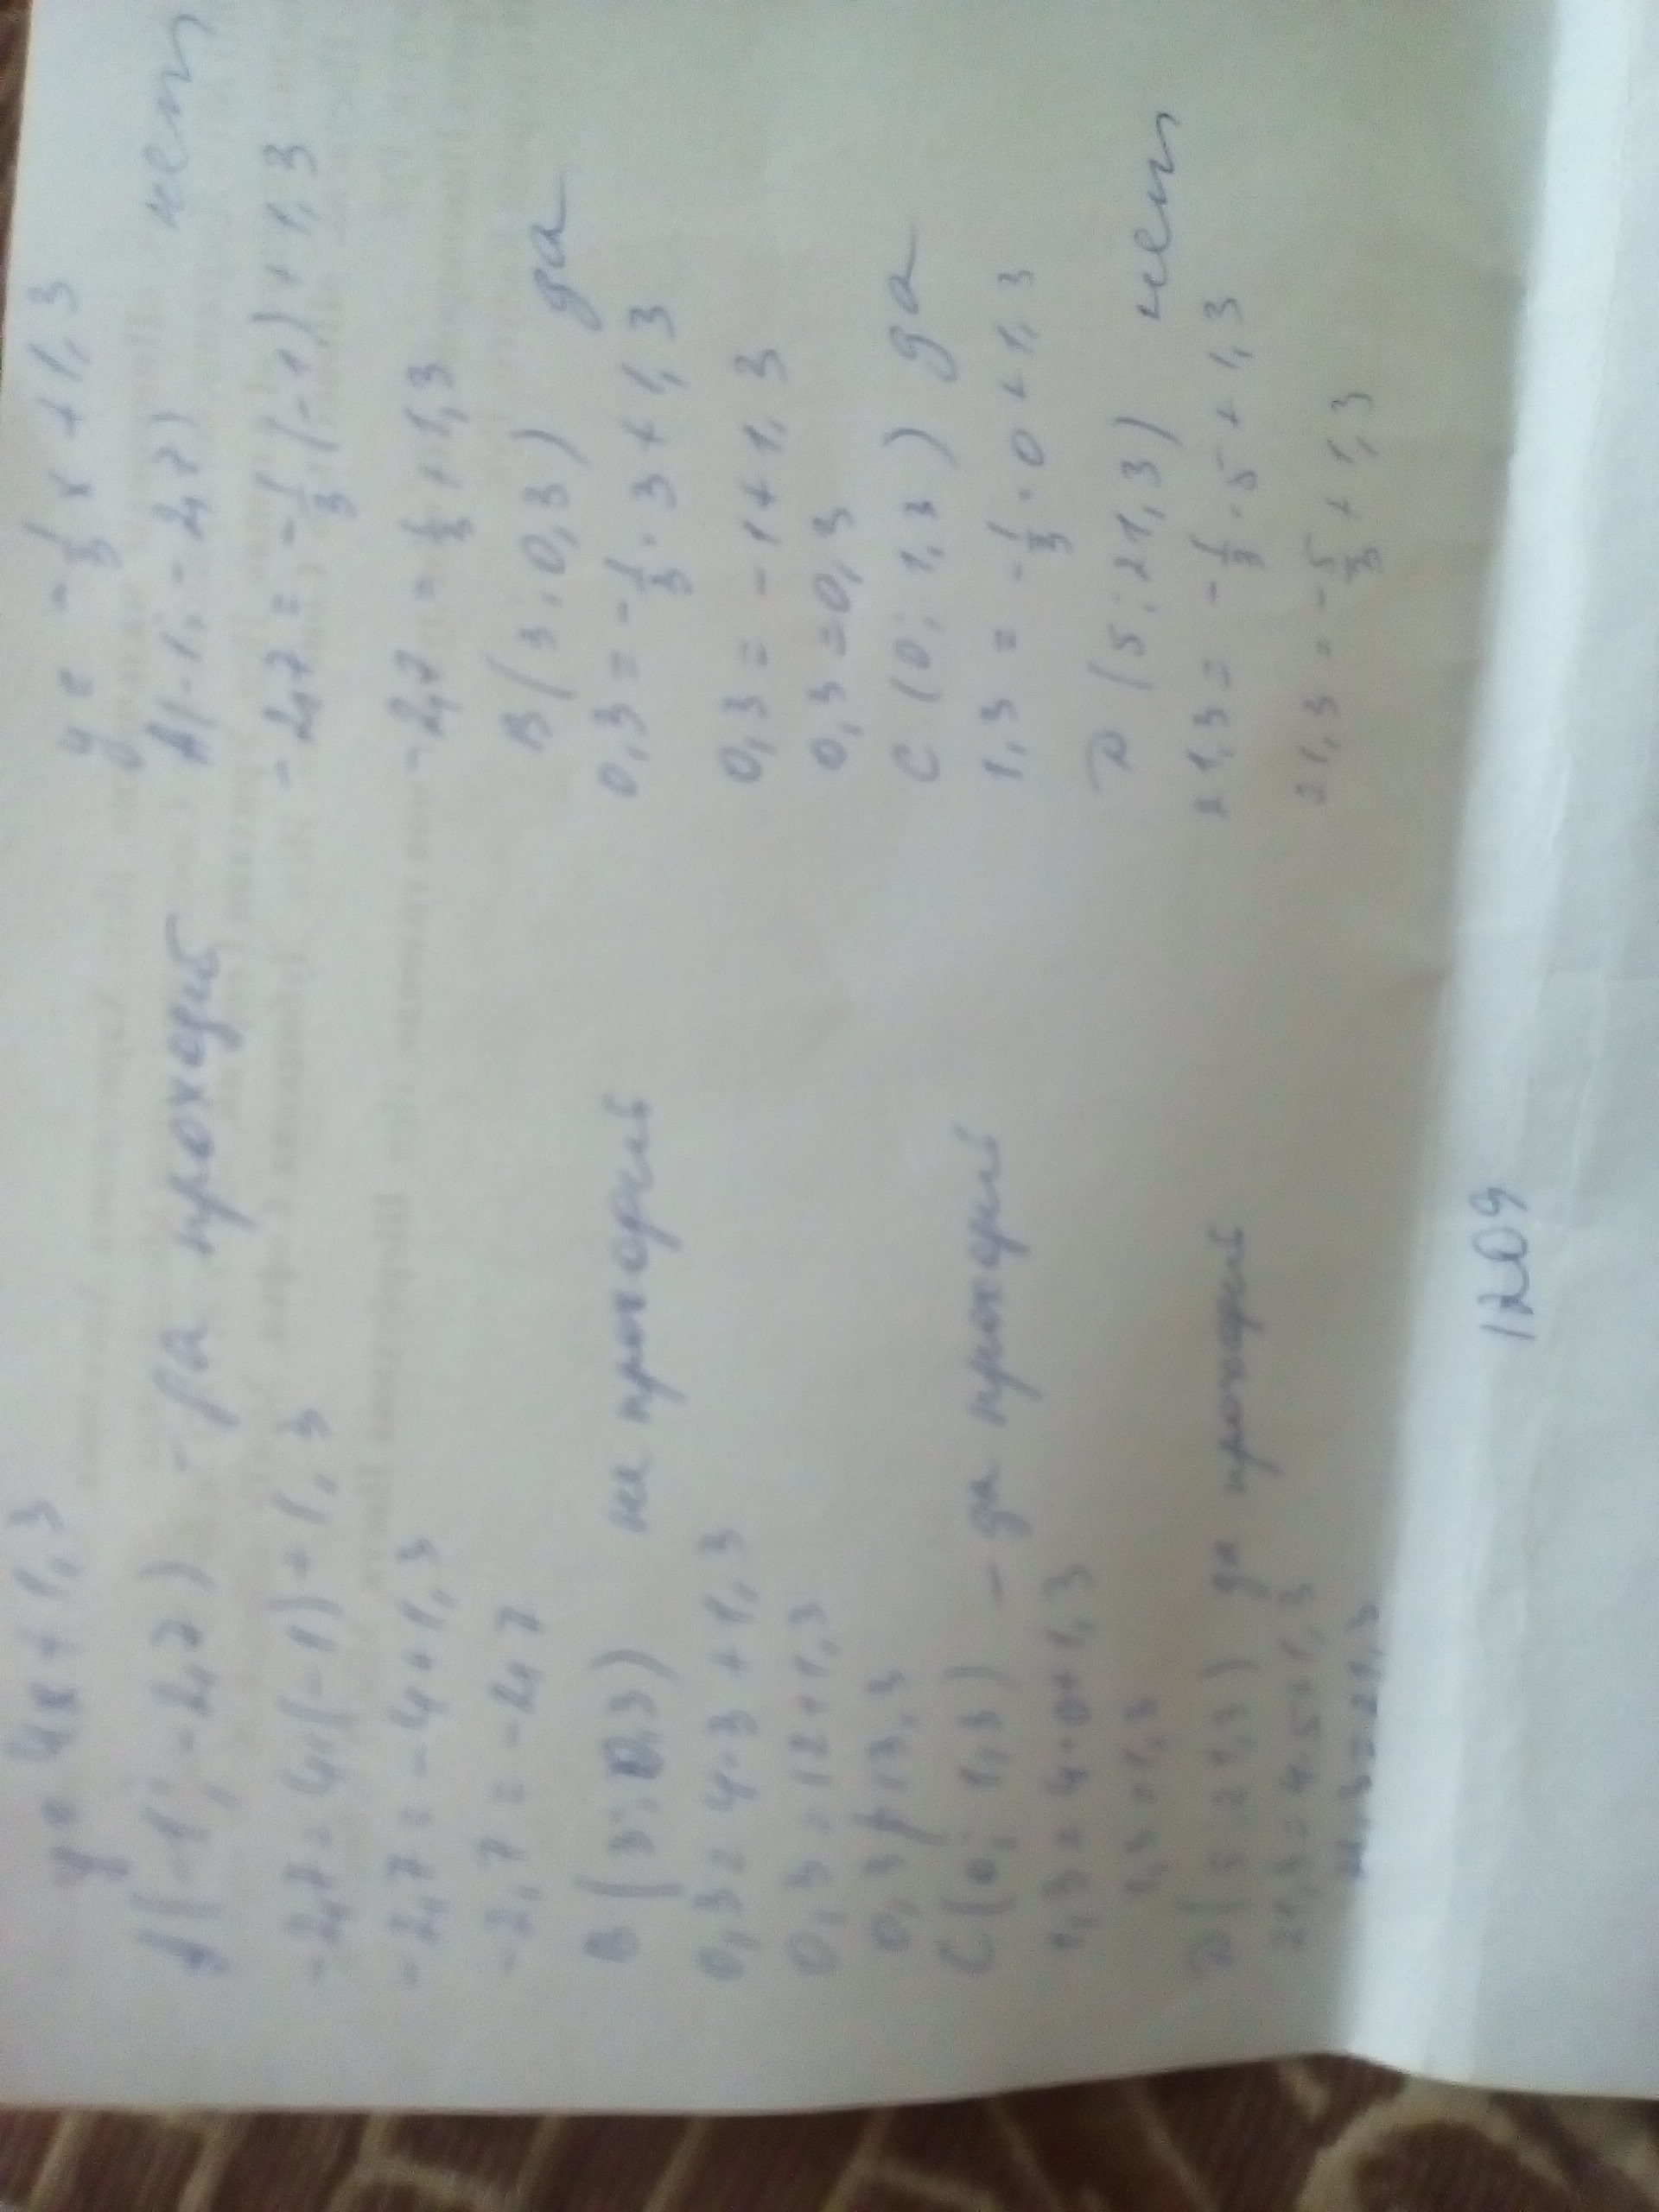 y = 4x + 1,3
A(-1; -2,7) - да проходит
-2,7 = 4(-1) + 1,3
-2,7 = -4 + 1,3
-2,7 = -2,7
B(3; 0,3) не проходит
0,3 = 4·3 + 1,3
0,3 = 12 + 1,3
0,3 ≠ 13,3
C(0; 1,3) - да проходит
1,3 = 4·0 + 1,3
1,3 = 1,3
D(5; 21,3) да проходит
21,3 = 4·5 + 1,3
21,3 = 21,3
y = -1/3 x + 1,3
A(-1; -2,7) нет
-2,7 = -1/3 (-1) + 1,3
-2,7 = 1/3 + 1,3
B(3; 0,3) да
0,3 = -1/3 · 3 + 1,3
0,3 = -1 + 1,3
0,3 = 0,3
C(0; 1,3) да
1,3 = -1/3 · 0 + 1,3
D(5; 21,3) нет
21,3 = -1/3 · 5 + 1,3
21,3 = -5/3 + 1,3
1209